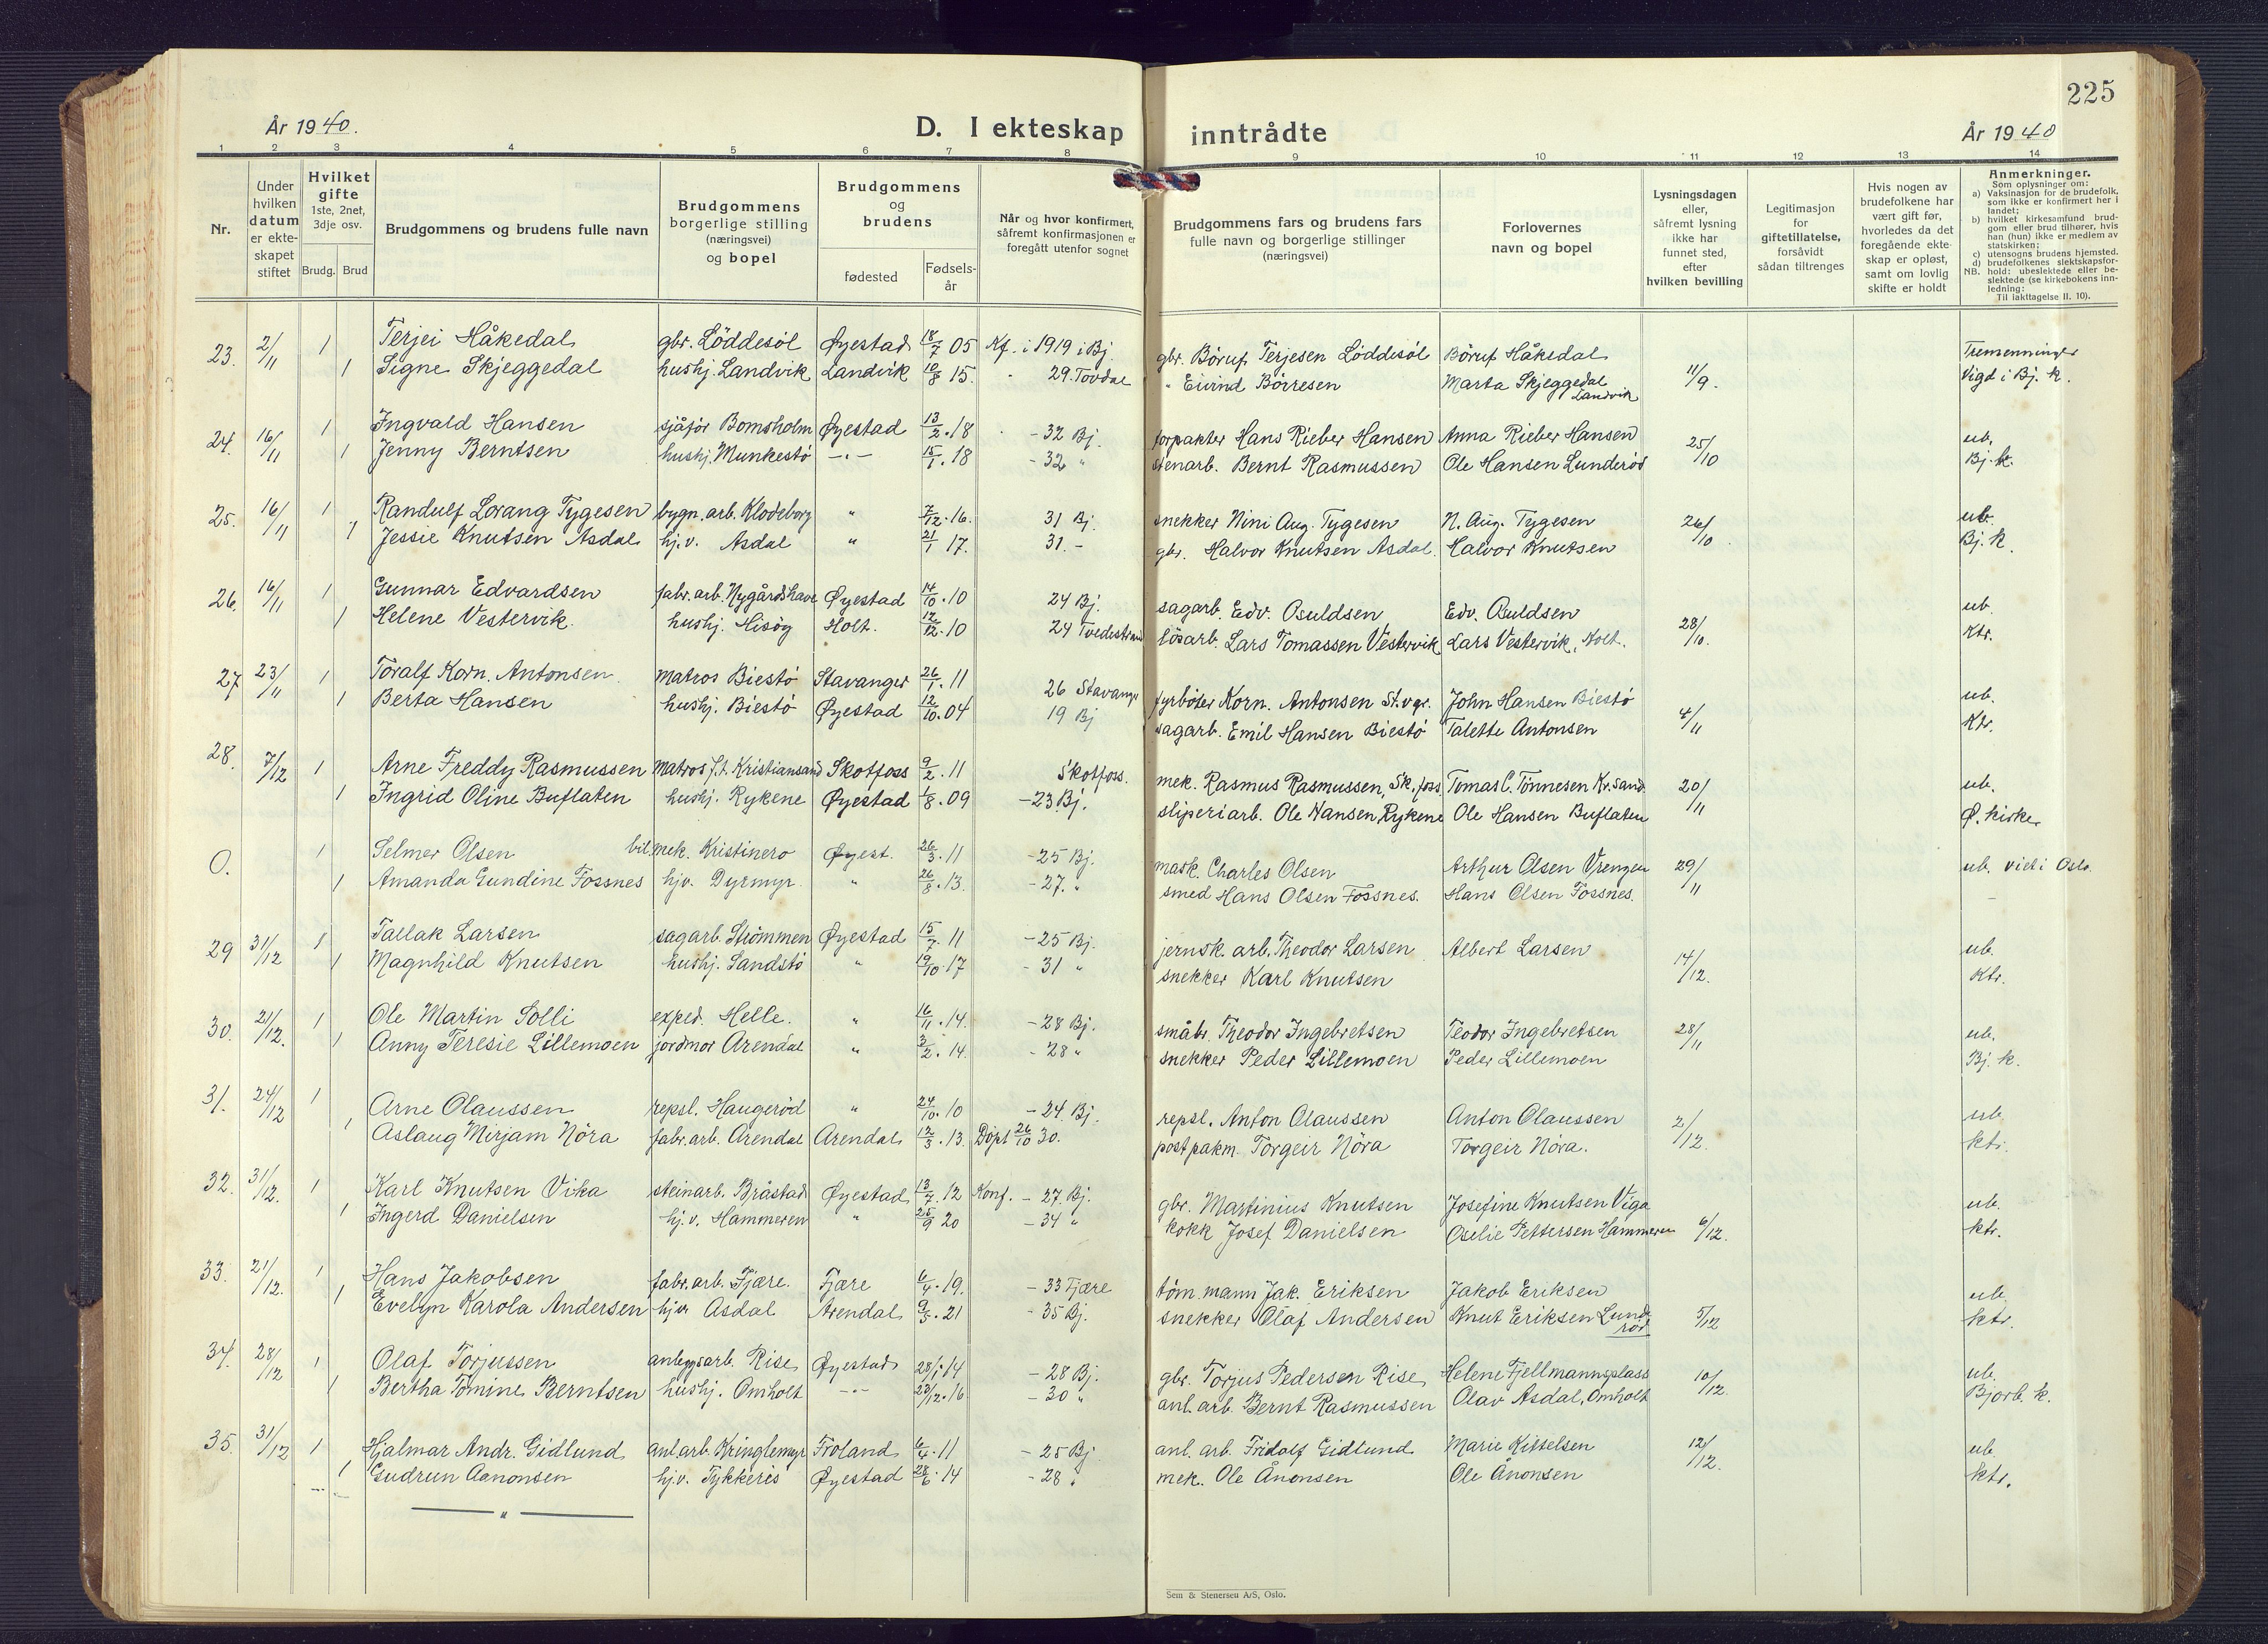 225
År 1940.
D. I ekteskap inntrådte
År 1940
1 2 3 4 5 6 7 8 9 10 11 12 13 14
Nr.
Under hvilken datum er ekte- skapet stiftet
Hvilket gifte 1ste, 2net, 3dje osv.
Brudg. Brud
Brudgommens og brudens fulle navn
Brudgommens borgerlige stilling (næringsvei) og bopel
Brudgommens og brudens
fødested
Fødsels- år
Når og hvor konfirmert, såfremt konfirmasjonen er foregått utenfor sognet
Brudgommens fars og brudens fars fulle navn og borgerlige stillinger (næringsvei)
Forlovernes navn og bopel
Lysningsdagen eller, såfremt lysning ikke har funnet sted, efter hvilken bevilling
Legitimasjon for giftetillatelse, forsåvidt sådan tiltrenges
Hvis nogen av brudefolkene har vært gift før, hvorledes da det foregående ekte- skap er opløst, samt om lovlig skifte er holdt
Anmerkninger.
Som oplysninger om:
a) Vaksinasjon for de brudefolk, som ikke er konfirmert her i landet;
b) hvilket kirkesamfund brud- gom eller brud tilhører, hvis han (hun) ikke er medlem av statskirken;
c) utensogns brudens hjemsted.
d) brudefolkenes slektskapsfor- hold: ubeslektede eller be- slektede (se kirkebokens inn- ledning:
NB. Til iakttagelse II. 10).
23. 2/11 1 Terjei Håkedal gbr. Löddesöl Øyestad 18/7 05 Kf. i 1919 i Bj. gbr. Böruf Terjesen Löddesöl Böruf Håkedal Tremenninger
1 Signe Skjeggedal hushj. Landvik Landvik 10/8 15. " 29. Tovdal " Eivind Börresen Marta Skjeggedal Landvik 11/9. Vigd i Bj. k.
24. 16/11 1 Ingvald Hansen sjåför Bomsholm Øyestad 13/2.18 - 32 Bj. forpakter Hans Rieber Hansen Anna Rieber Hansen 25/10 ub.
1 Jenny Berntsen hushj. Munkestö -"- 15/1. 18 - 32 " stenarb. Bernt Rasmussen Ole Hansen Lunderöd Bj. k.
25. 16/11 1 Randulf Lorang Tygesen bygn. arb. Klodeborg " 7/12.16. 31 Bj. snekker Nini Aug. Tygesen N. Aug. Tygesen 26/10. ub.
1 Jessie Knutsen Asdal hj.v. Asdal " 21/1 17. 31. - gbr. Halvor Knutsen Asdal. Halvor Knutsen Bj. k.
26. 16/11 1 Gunnar Edvardsen fabr. arb. Nygårdshave Øyestad 14/10.10 24 Bj. sagarb. Edv. Osuldsen Edv. Osuldsen 28/10. ub.
1 Helene Vestervik. hushj. Hisöy Holt. 12/12.10 24 Tvedestrand lösarb. Lars Tomassen Vestervik Lars Vestervik, Holt. Ktr.
27 23/11 1 Toralf Korn. Antonsen. Matros Biestö Stavanger 26/1.11 26 Stavanger fyrböter Korn. Antonsen St.vgr. John Hansen Biestö 4/11 ub.
1 Berta Hansen hushj. Biestö Øyestad 12/10.04 19 Bj sagarb. Emil Hansen Biestö Talette Antonsen Ktr.
28. 7/12 1 Arne Freddy Rasmussen Matros f.t. Kristiansand Skotfoss 9/2.11 Skotfoss. mek. Rasmus Rasmussen, Sk.foss Tomas C. Tönnesen Kr.sand 20/11 ub.
1 Ingrid Oline Buflaten hushj. Rykene Øyestad 1/8.09 - 23 Bj. sliperiarb. Ole Hansen, Rykene Ole Hansen Buflaten Ø. kirke
0. 1 Selmer Olsen bil.mek. Kristinero Øyest. 26/3.11 - 25 Bj. mask. Charles Olsen Arthur Olsen Vrengen 29/11 ub. viet i Oslo.
1 Amanda Gundine Fossnes hjv. Dyrmyr. " 26/8.13. - 27. " smed Hans Olsen Fossnes. Hans Olsen Fossnes. -
29 31/12 1 Tallak Larsen sagarb. Strömmen Øyestad 15/7.11 - 25 Bj. jernsk. arb. Theodor Larsen Albert Larsen 14/12. ub.
1 Magnhild Knutsen hushj. Sandstö " 19/10.17 - 31 " snekker Karl Knutsen Ktr.
30. 21/12. 1 Ole Martin Solli exped. Helle. " 16/11.14. - 28 Bj. småbr. Theodor Ingebretsen Teodor Ingebretsen 28/11 ub.
1 Anny Teresie Lillemoen jordmor Arendal " 3/2.14. - 28 " snekker Peder Lillemoen Peder Lillemoen Bj. k.
31. 24/12 1 Arne Olaussen repsl. Haugeröd " 24/10.10 - 24 Bj. repsl. Anton Olaussen Anton Olaussen 2/12. ub.
1 Aslaug Mirjam Nöra fabr. arb. Arendal Arendal 12/3.13. Döpt 26/10 30. postpakm. Torgeir Nöra Torgeir Nöra. ktr.
32. 31/12. 1 Karl Knutsen Vika steinarb. Bråstad Øyestad 13/7.12 Konf. - 27. Bj. gbr. Martinius Knutsen Josefine Knutsen Viga ub.
1 Ingerd Danielsen hj.v. Hammeren " 25/9 20 - 34 " kokk Josef Danielsen Oselie Pettersen Hammeren 6/12. ktr.
33. 21/12. 1 Hans Jakobsen fabr. arb. Fjære. Fjære 6/4.19. - 33 Fjære töm. mann Jak. Eriksen Jakob Eriksen ub.
1 Evelyn Karola Andersen hjv Asdal Arendal 9/5.21 - 35 Bj. snekker Olaf Andersen Knut Eriksen Lunderöd 5/12 ktr.
34. 28/12 1 Olaf Torjussen anleggsarb. Rise Øyestad 28/1.14 - 28 Bj. gbr. Torjus Pedersen Rise Helene Fjellmannsplass 10/12. ub.
1 Bertha Tomine Berntsen hushj. Omholt -"- 23/12.16 - 30 " anl. arb. Bernt Rasmussen Olav Asdal, Omholt Bjorb. k.
35. 31/12 1 Hjalmar Andr. Gidlund anl. arb. Kringlemyr Froland 6/4.11 - 25 Bj anl. arb. Fridolf Gidlund Marie Kittelsen 12/12. ub
1 Gudrun Aanonsen hj.v. Tykkeris Øyestad 28/6.14 - 28 " mek. Ole Ånonsen Ole Ånonsen ktr.
Sem & Stenersen A/S, Oslo.